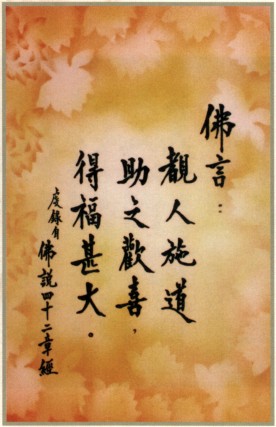 佛言：
覩人施道
助之歡喜，
得福甚大。
虔錄自佛說四十二章經